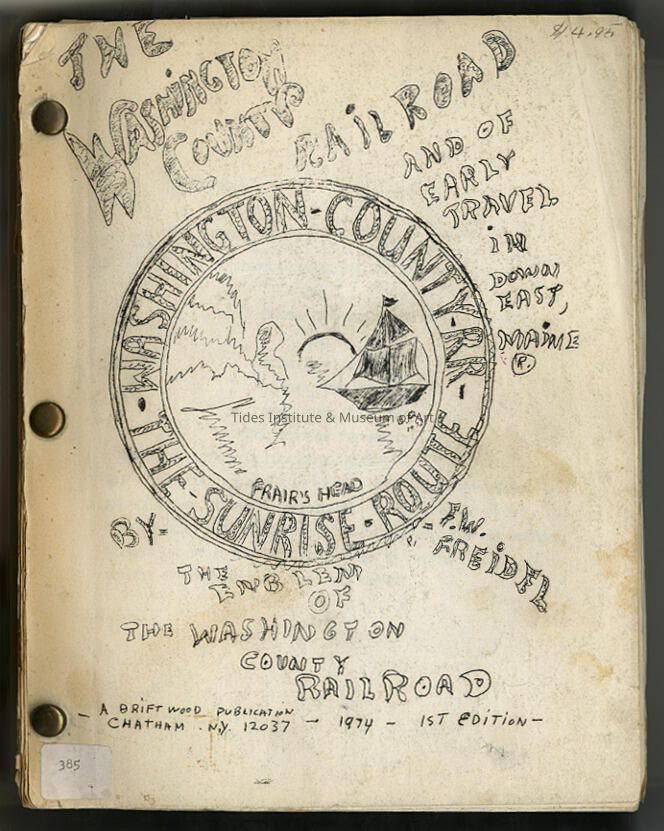 $14.95
THE
WASHINGTON
COUNTY
RAILROAD
AND OF
EARLY
TRAVEL
IN
DOWN
EAST,
MAINE
R.
WASHINGTON-COUNTY-RR-
-THE-SUNRISE-ROUTE-
Tides Institute & Museum of Art
FRAIR'S HEAD
BY-
F.W.
FREIDEL
THE
ENBLEM
OF
THE WASHINGTON
COUNTY
RAILROAD
- A DRIFTWOOD PUBLICATION
CHATHAM N.Y. 12037 - 1974 - 1ST EDITION-
385